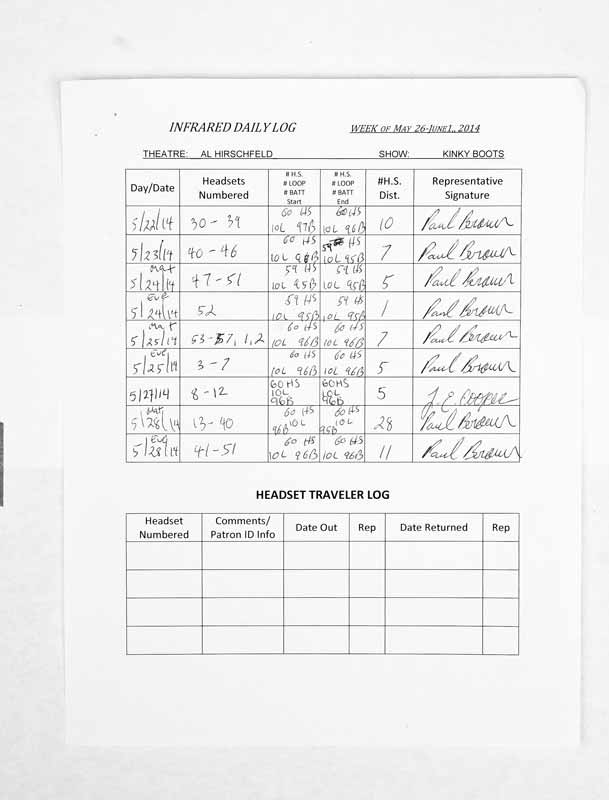 INFRARED DAILY LOG WEEK OF MAY 26-JUNE1., 2014
THEATRE: AL HIRSCHFELD SHOW: KINKY BOOTS
Day/Date Headsets Numbered # H.S. # LOOP # BATT Start # H.S. # LOOP # BATT End #H.S. Dist. Representative Signature
5/22/14 30 - 39 60 HS 10L 97B 60 HS 10L 96B 10 Paul Berown
5/23/14 40 - 46 60 HS 10L 96B 59 HS 10L 95B 7 Paul Berown
Mat 5/24/14 47-51 59 HS 10L 95B 59 HS 10L 95B 5 Paul Berown
Eve 5/24/14 52 59 HS 10L 95B 59 HS 10L 95B 1 Paul Berown
Mat 5/25/14 53-57, 1, 2 60 HS 10L 96B 60 HS 10L 96B 7 Paul Berown
Eve 5/25/14 3-7 60 HS 10L 96B 60 HS 10L 96B 5 Paul Berown
5/27/14 8-12 60HS 10L 96B 60HS 10L 96B 5
Mat 5/28/14 13-40 60 HS 10L 96B 60HS 10L 95B 28 Paul Berown
Eve 5/28/14 41-51 60 HS 10L 96B 60 HS 10L 96B 11 Paul Berown
HEADSET TRAVELER LOG
Headset Numbered Comments/ Patron ID Info Date Out Rep Date Returned Rep